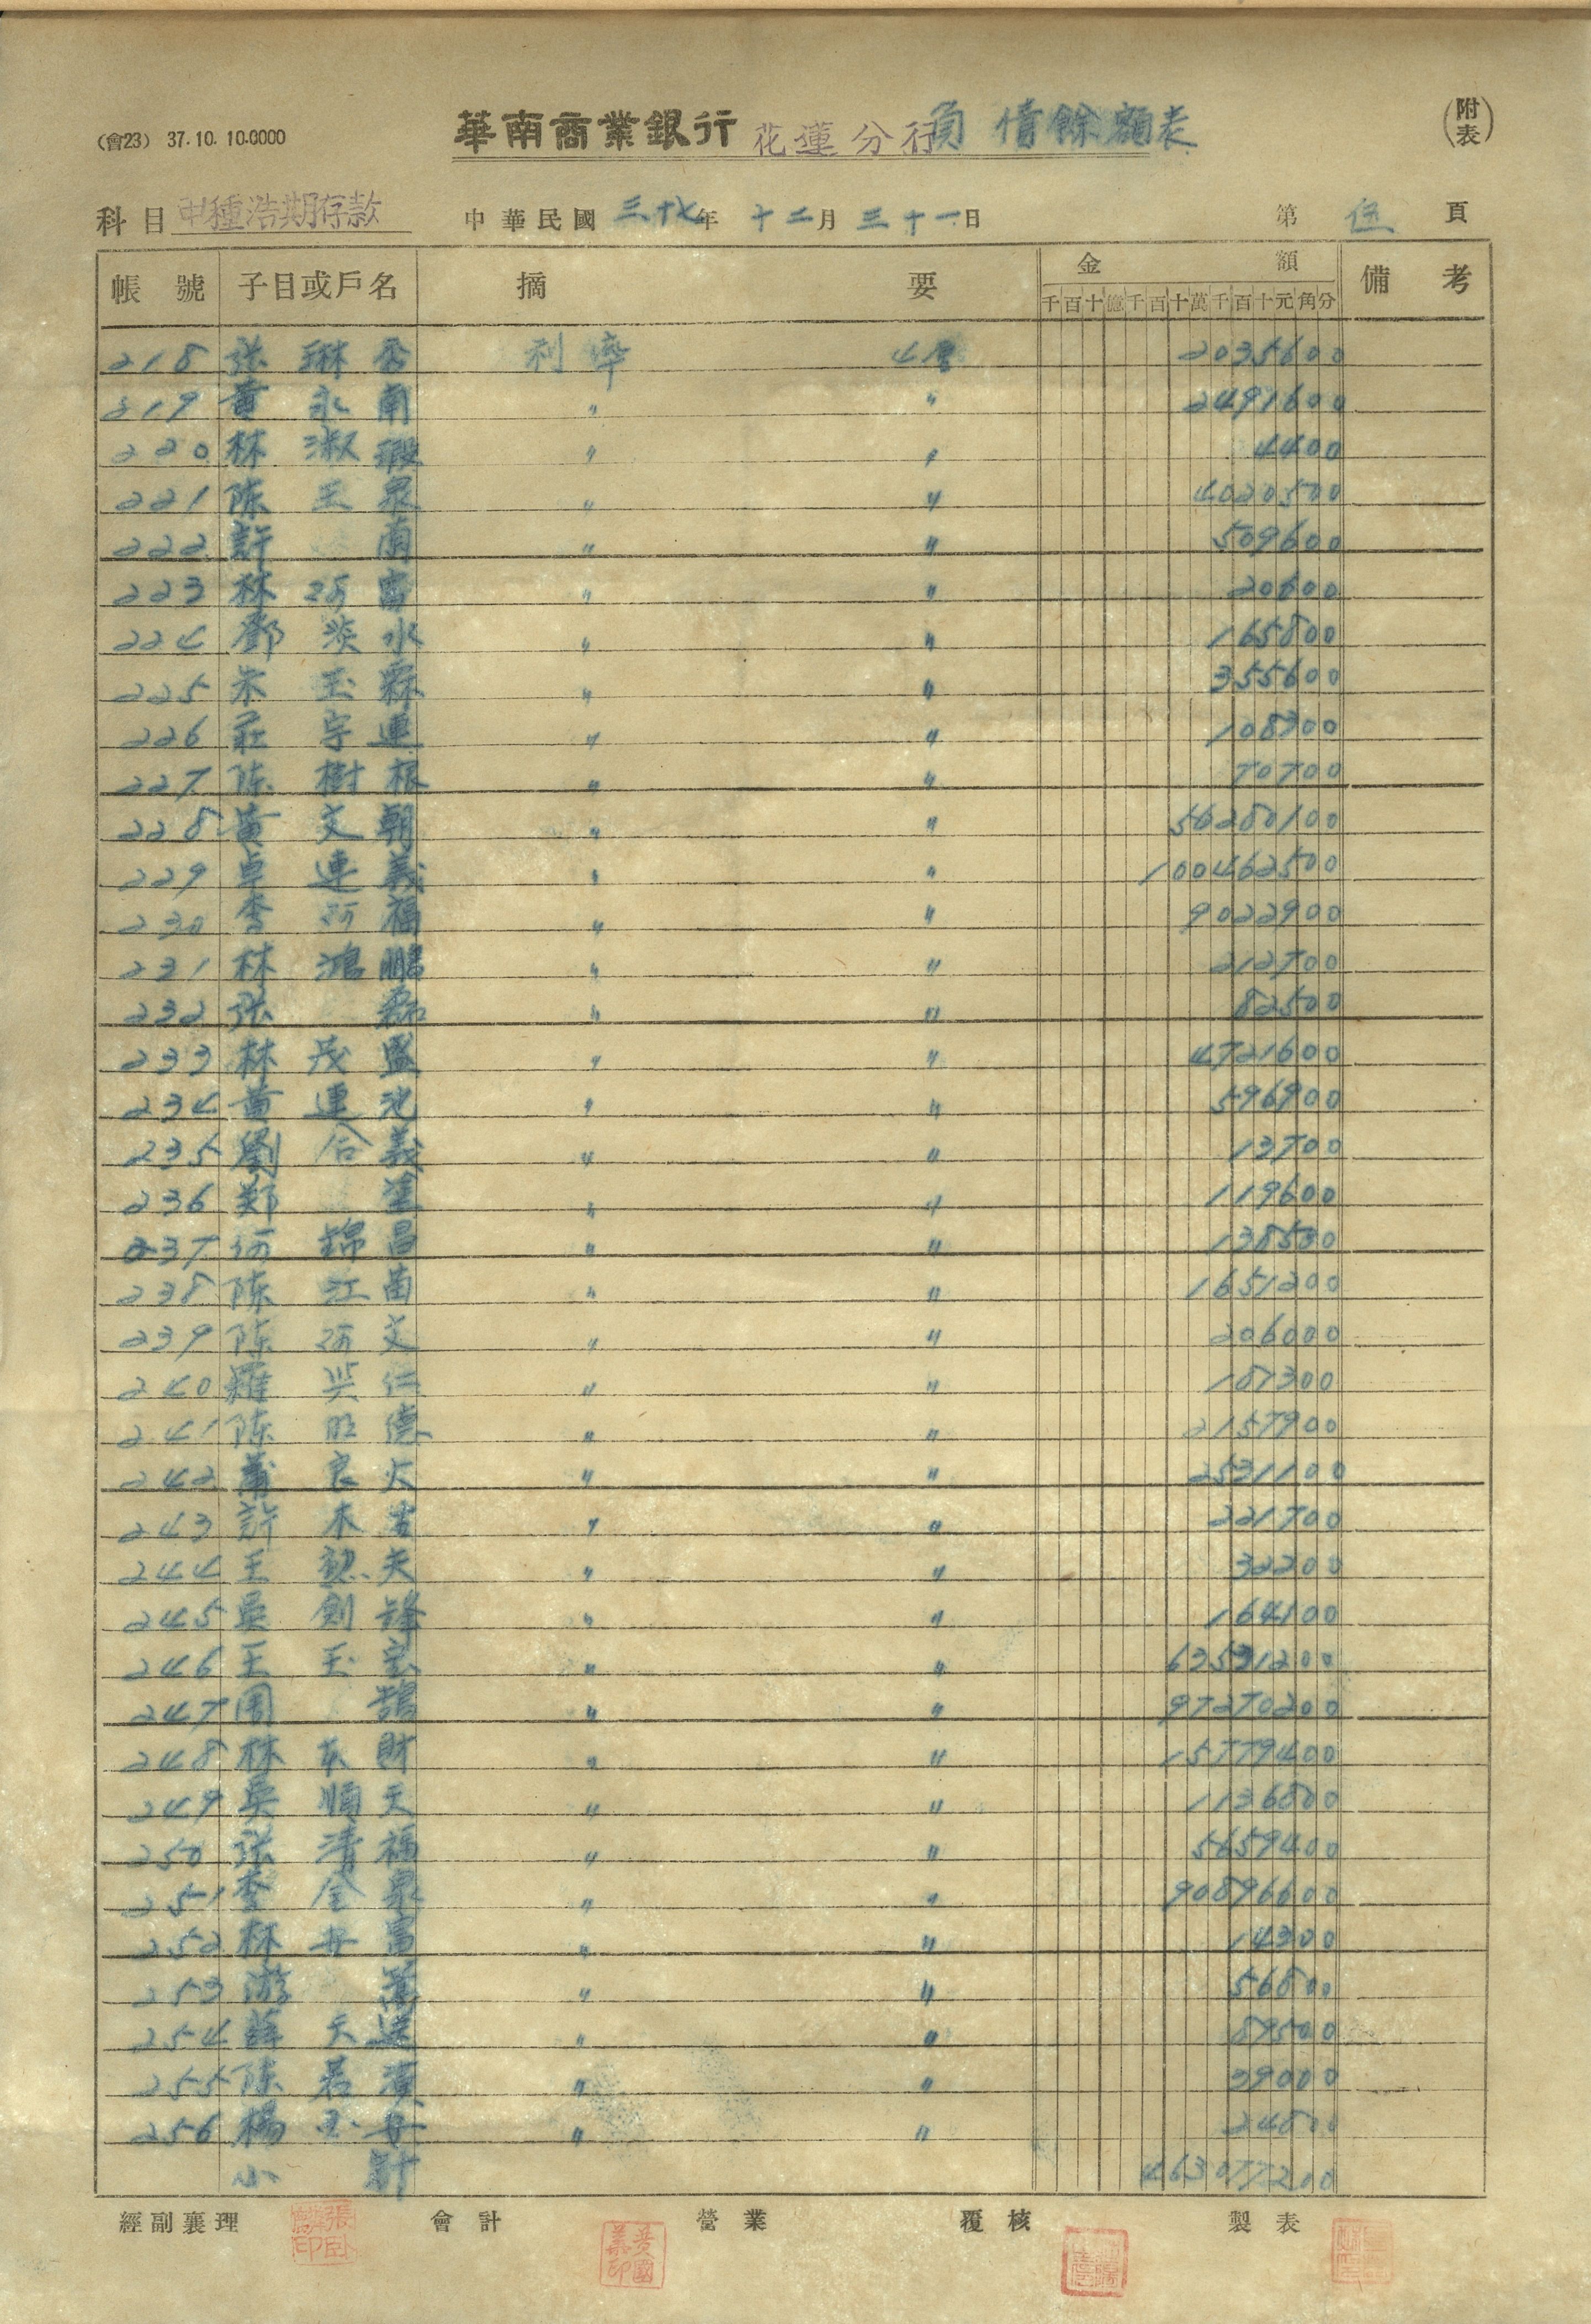 (會23) 37.10.10.0000
華南商業銀行 花蓮分行 負債餘額表
(附表)
科目 甲種活期存款 中華民國 三十七年 十二月 三十一日 第 伍 頁
帳號 子目或戶名 摘要 金額 備考
千百十億千百十萬千百十元角分
218 張琳香 利率 4厘 2035600
219 黃永南 〃 〃 2491600
220 林淑瑕 〃 〃 4400
221 陳玉泉 〃 〃 4020500
222 許南 〃 〃 509600
223 林阿富 〃 〃 20600
224 鄧炎水 〃 〃 165800
225 朱玉霖 〃 〃 355600
226 莊宇連 〃 〃 108300
227 陳樹根 〃 〃 70700
228 黃文朝 〃 〃 56280100
229 卓連義 〃 〃 100462500
230 李阿福 〃 〃 9022900
231 林鴻鵬 〃 〃 212700
232 張磊 〃 〃 82500
233 林茂盛 〃 〃 4721600
234 黃連池 〃 〃 596900
235 劉合義 〃 〃 13700
236 鄭塗 〃 〃 119600
237 何錦昌 〃 〃 138500
238 陳江苗 〃 〃 1651200
239 陳阿文 〃 〃 206000
240 羅興仁 〃 〃 187300
241 陳旺德 〃 〃 2157900
242 蕭良火 〃 〃 2531100
243 許木吉 〃 〃 221700
244 王 〃 〃 32200
245 吳劍鋒 〃 〃 164100
246 王玉宝 〃 〃 63531200
247 周鵠 〃 〃 97270200
248 林東財 〃 〃 15779400
249 吳順天 〃 〃 1136800
250 張清福 〃 〃 5659400
251 李金泉 〃 〃 90896600
252 林丹富 〃 〃 14300
253 游萬 〃 〃 56800
254 薛天送 〃 〃 89500
255 陳若濱 〃 〃 39000
256 楊玉安 〃 〃 24800
小計 463077200
經副襄理 會計 營業 覆核 製表